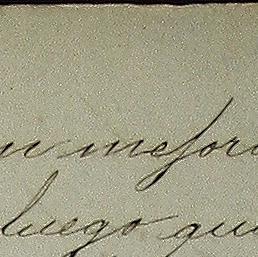 mejor
luego qu